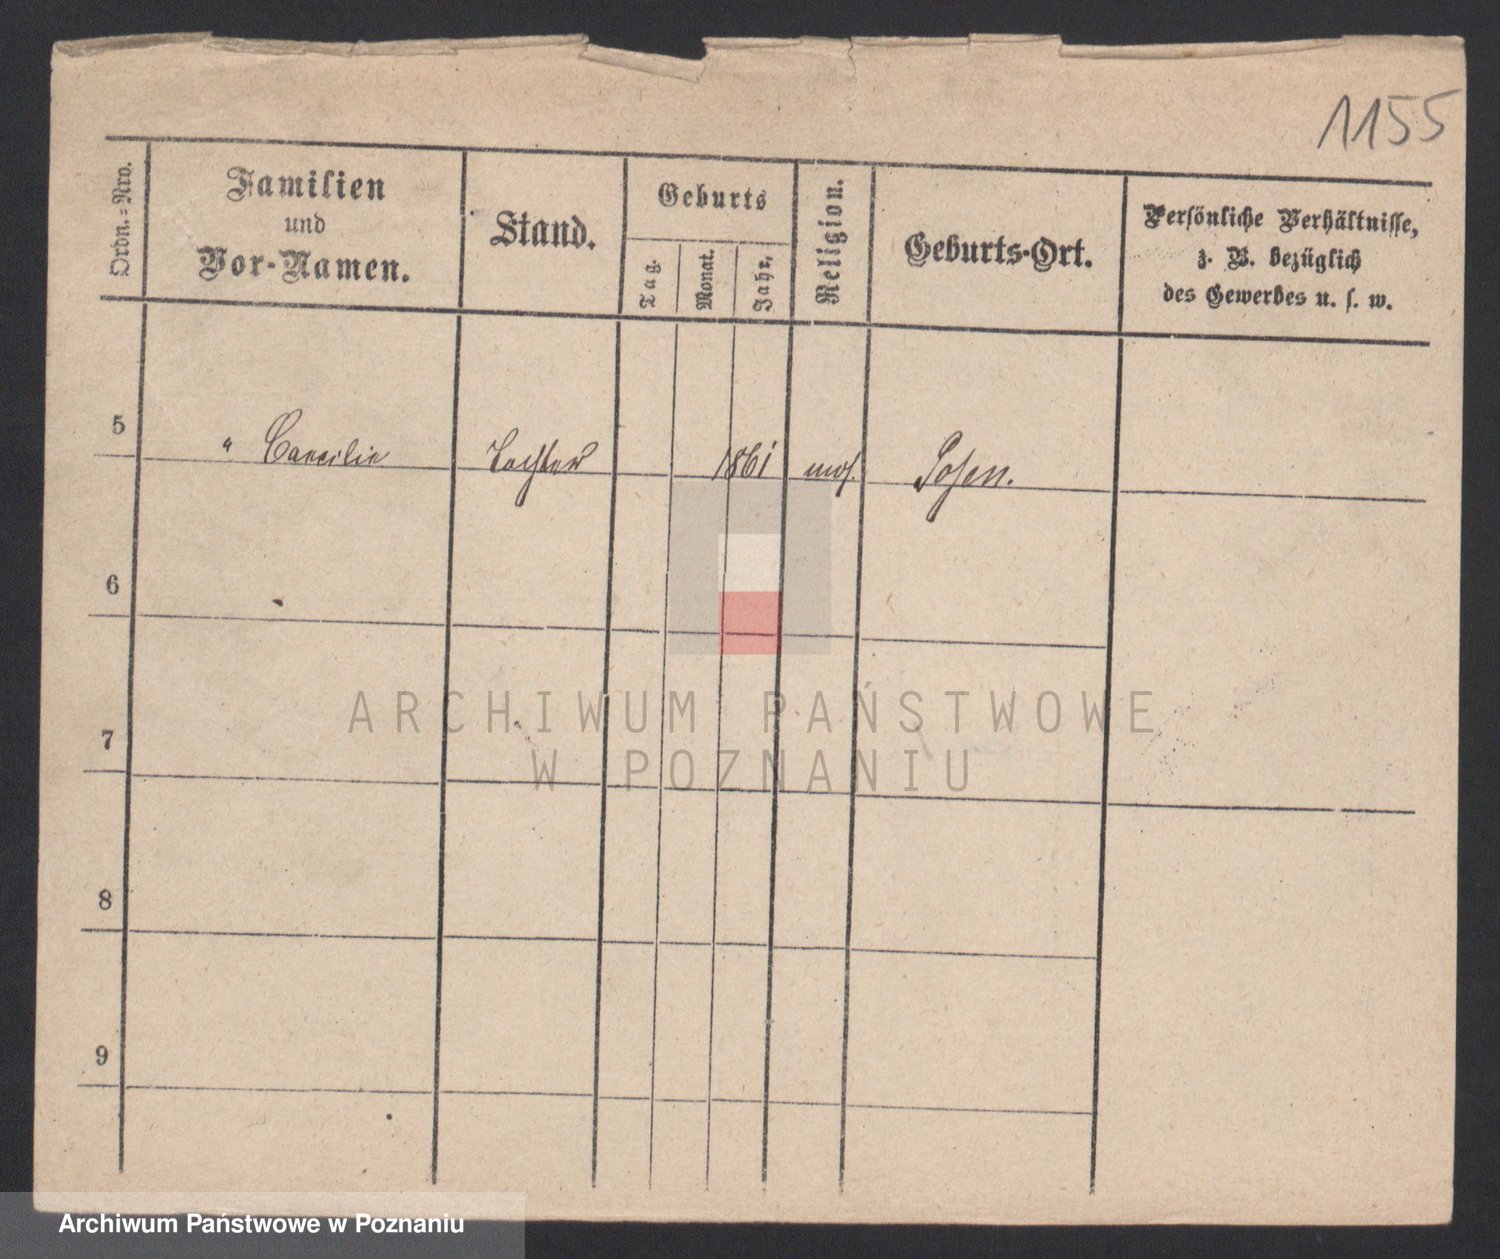 1155
Ordn.=Nro.
Familien
und
Vor-Namen.
Stand.
Geburts
Tag.
Monat.
Jahr,
Religion.
Geburts-Ort.
Persönliche Verhältnisse,
z. B. bezüglich
des Gewerbes u. s. w.
5 " Caecilie Tochter 1861 mos. Posen.
6
7
8
9
ARCHIWUM PAŃSTWOWE
W POZNANIU
Archiwum Państwowe w Poznaniu